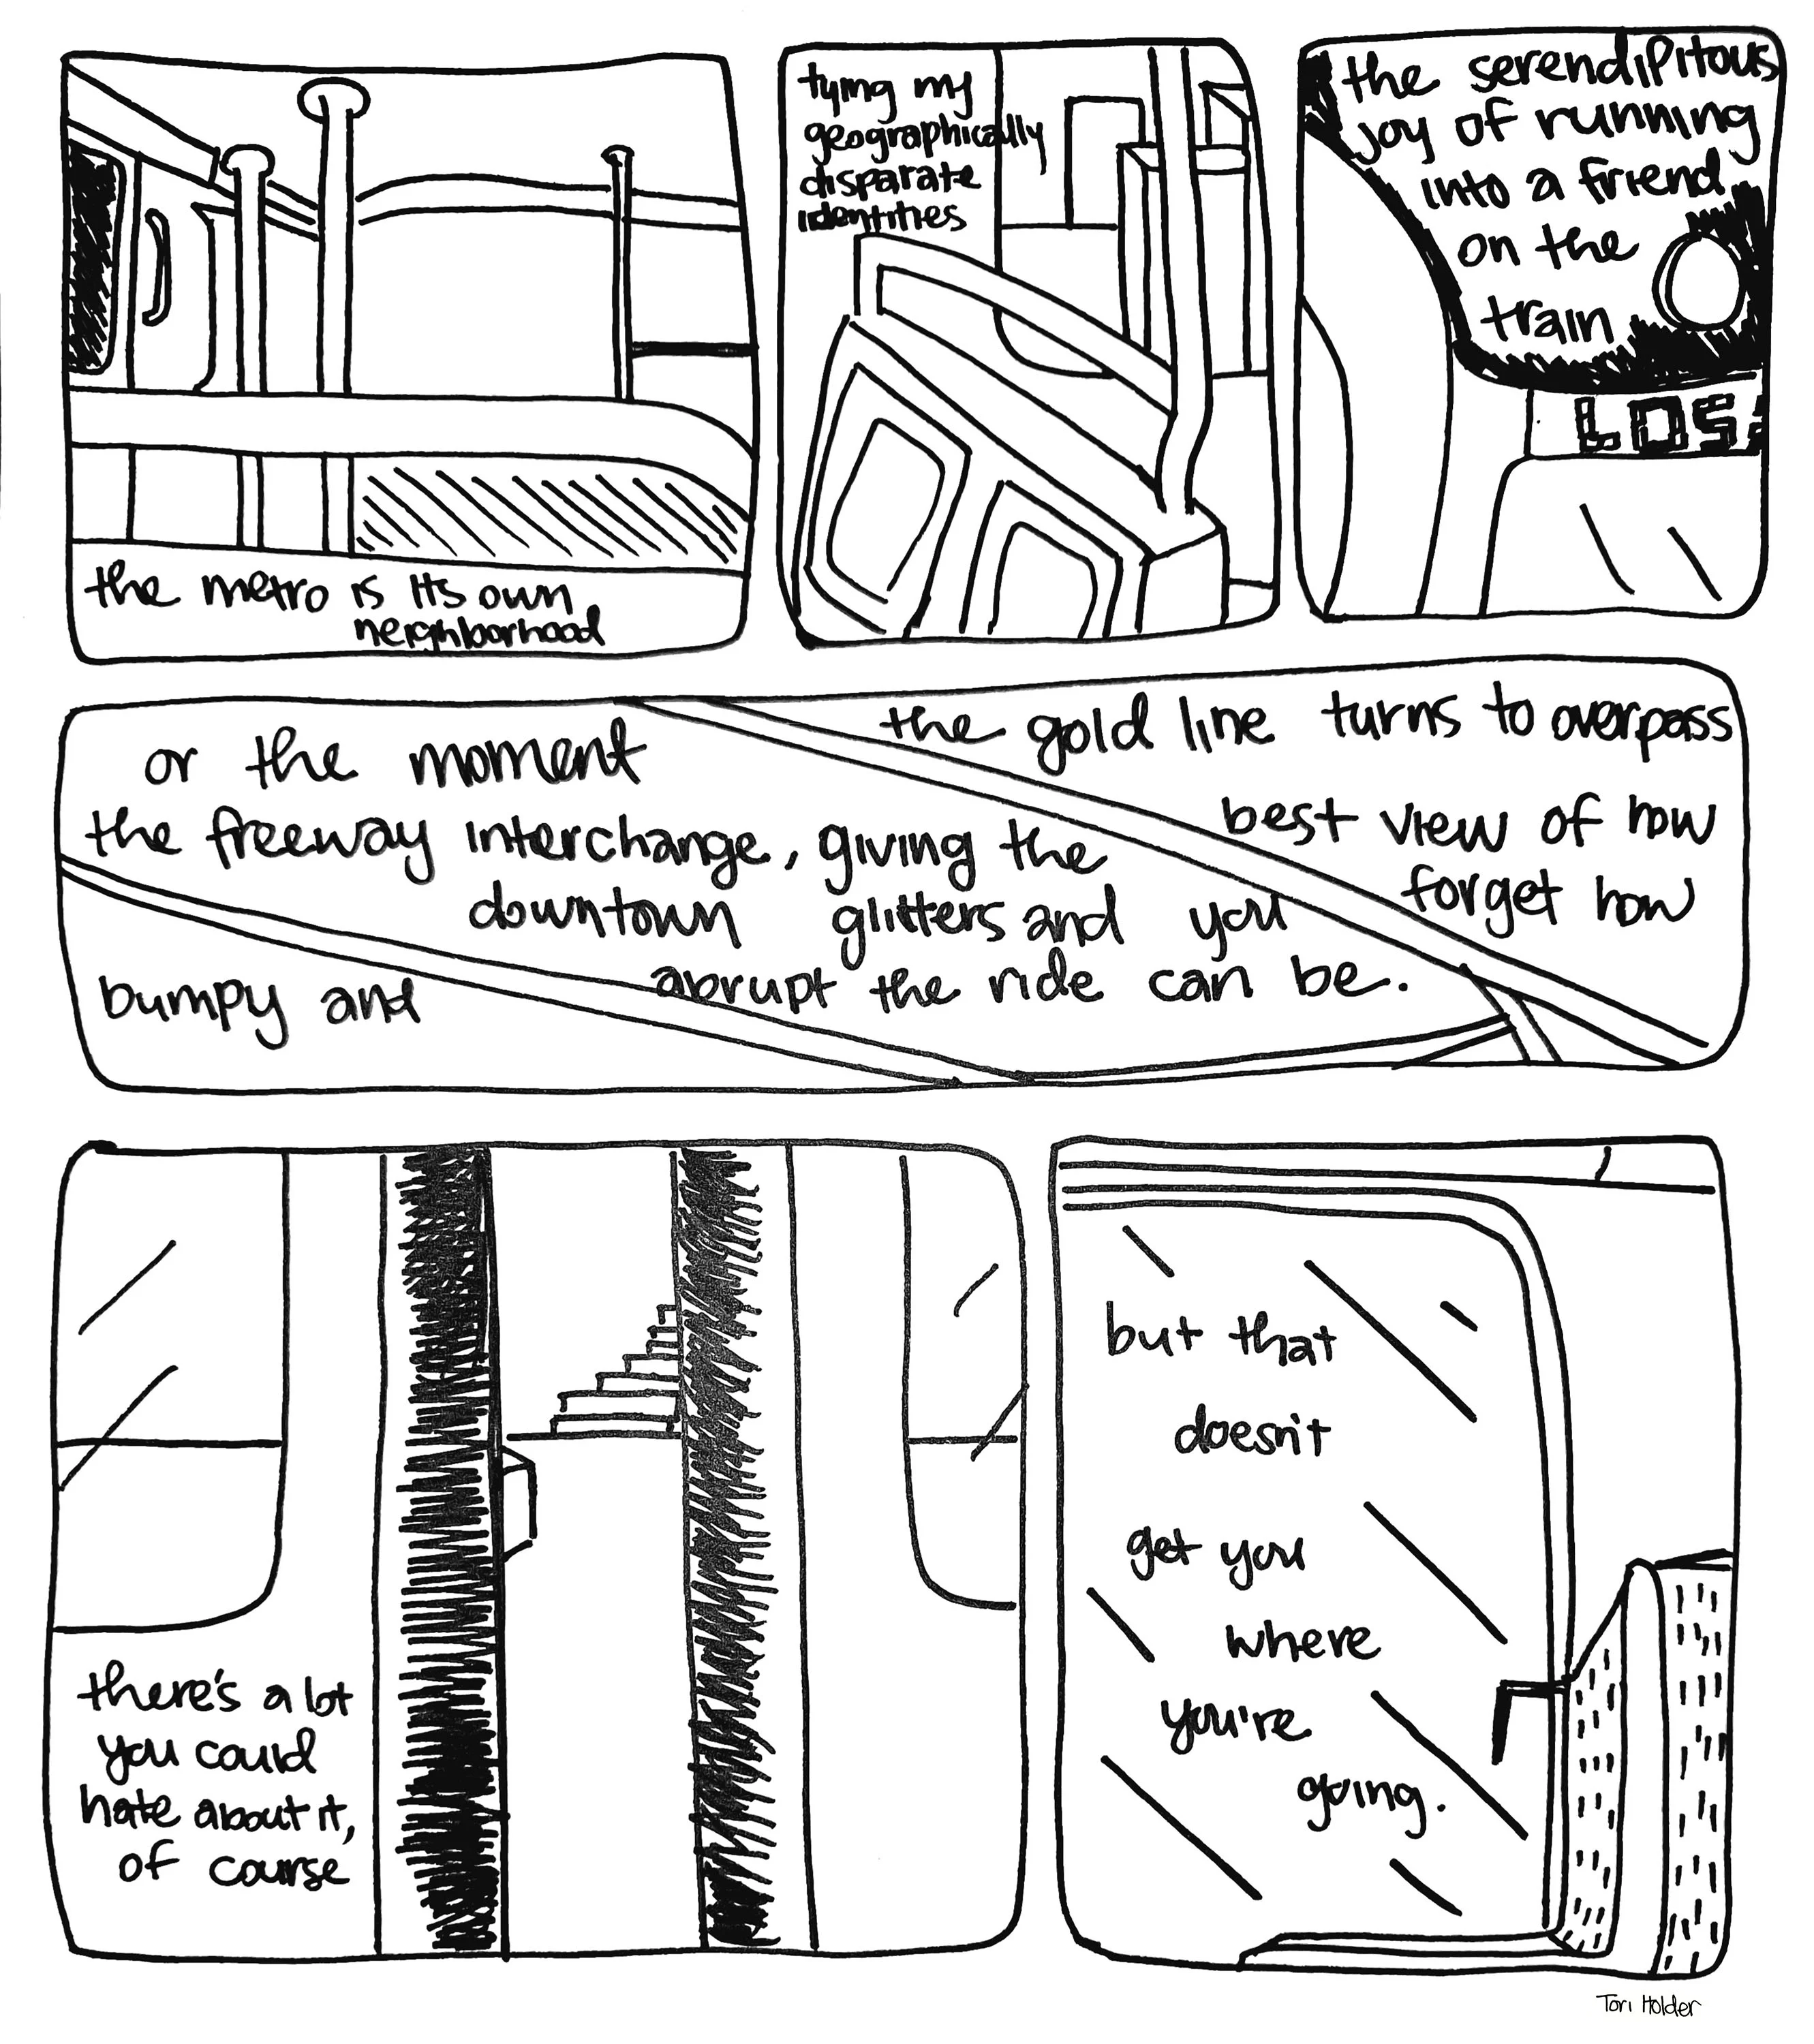 the metro is its own
neighborhood
tying my
geographically
disparate
identities
the serendipitous
joy of running
into a friend
on the
train
LOS
or the moment the gold line turns to overpass
the freeway interchange, giving the best view of how
downtown glitters and you forget how
bumpy and abrupt the ride can be.
there's a lot
you could
hate about it,
of course
but that
doesn't
get you
where
you're
going.
Tori Holder